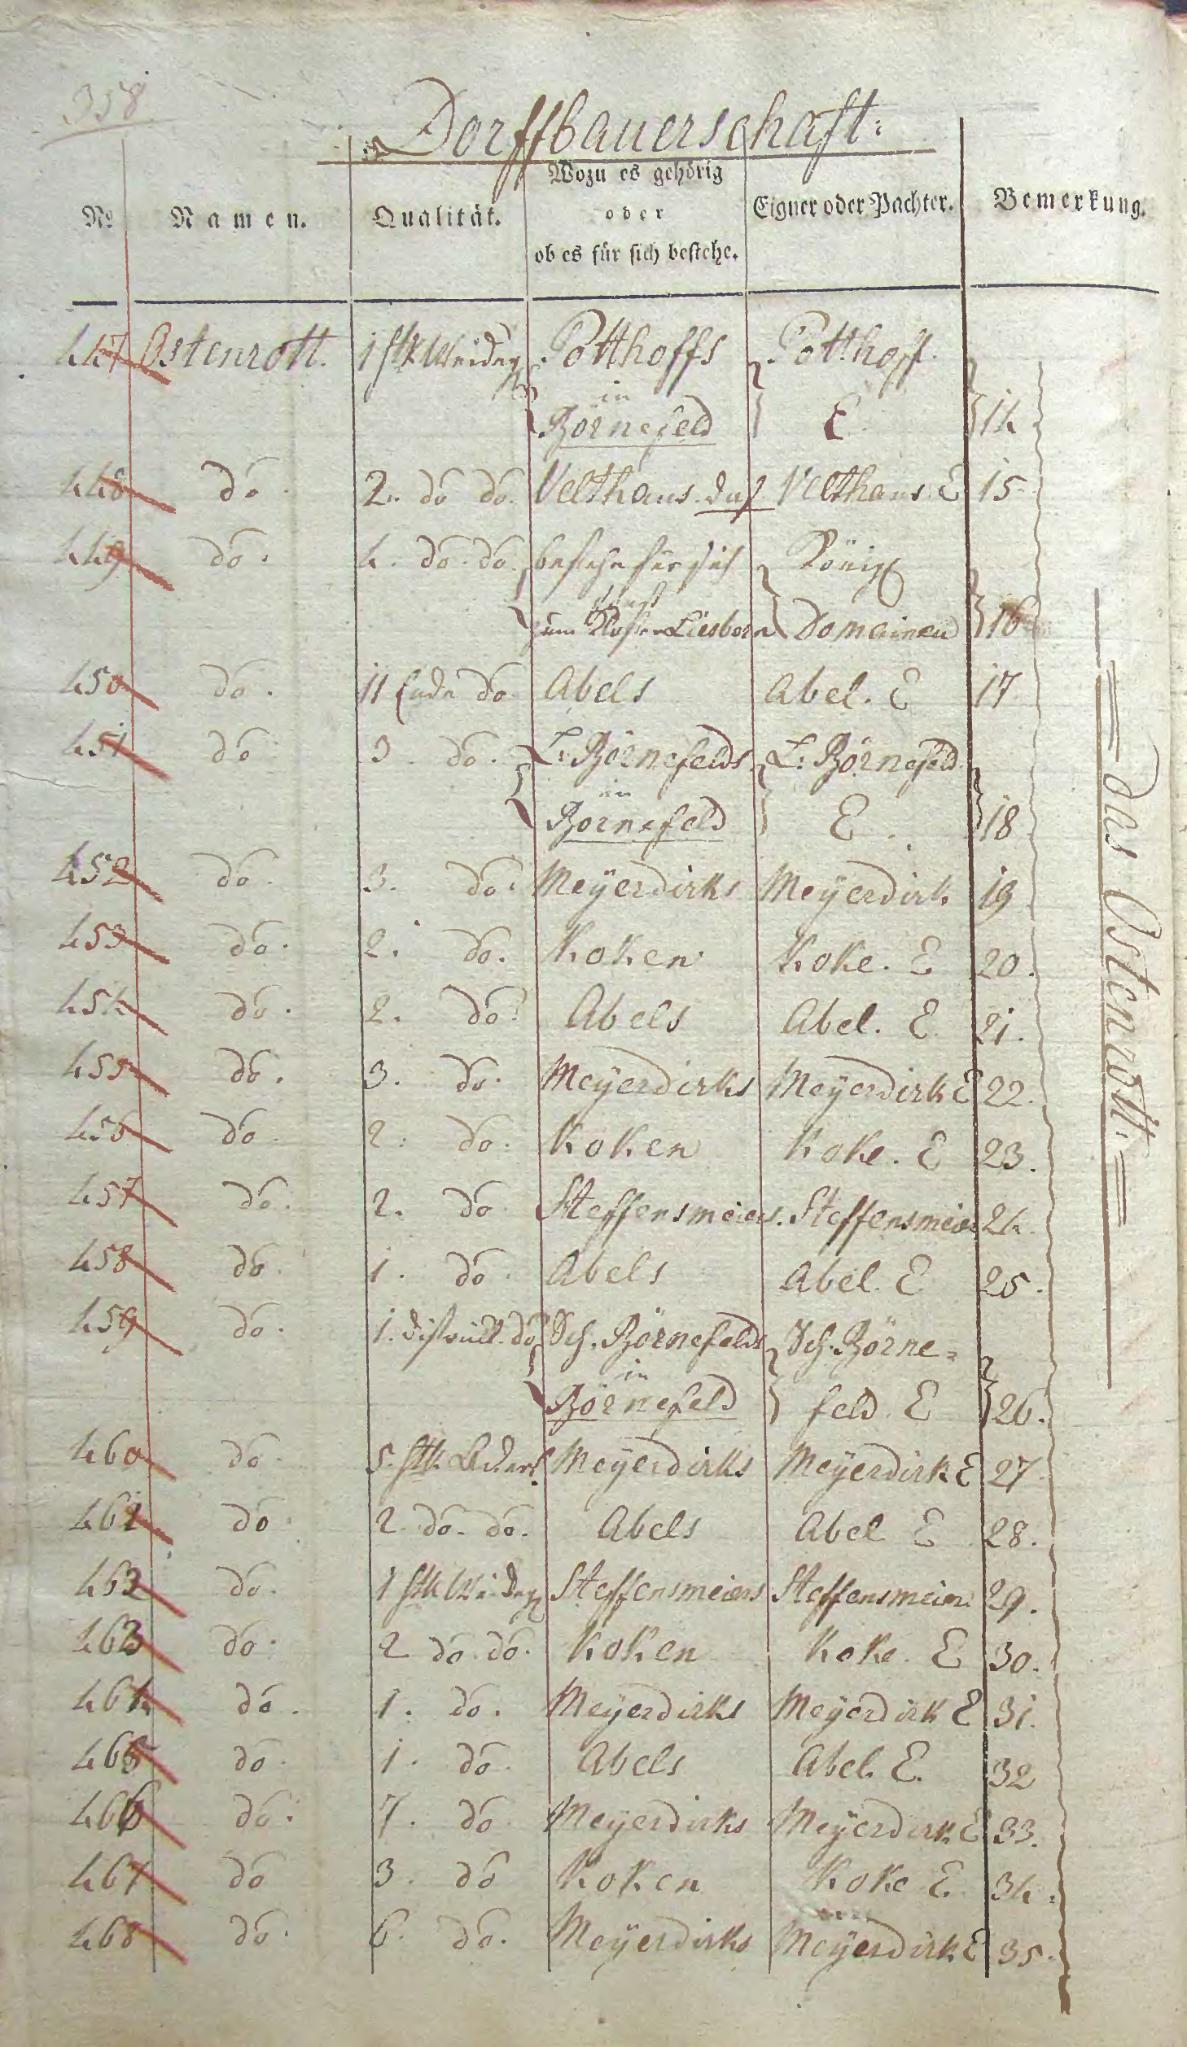 358
Dorffbauerschaft:
No Namen. Qualität. Wozu es gehörig oder ob es für sich bestehe. Eigner oder Pachter. Bemerkung.
447 Ostenrott. 1 stk Weideg Potthoffs Potthoff.
in
Börnefeld E 14
448 do. 2. do do. Velthaus das Velthaus. E 15
449 do. 4. do. do. bestehe für sich König
zum Kloster Liesborn Domainen 16
450 do. 11 Ende do. Abels Abel. E 17
451 do 3. do. L: Börnefelds L: Börnefeld
in
Börnefeld E. 18
452 do. 3. do. Meÿerdirks Meÿerdirk 19
453 do. 2. do. Koken Koke. E 20.
454 do. 2. do. Abels Abel. E 21.
455 do. 3. do. Meÿerdirks Meÿerdirk E 22.
456 do. 2. do. Koken Koke. E 23.
457 do. 2. do Steffensmeiers. Steffensmeier 24.
458 do. 1. do. Abels Abel. E 25.
459 do. 1. district. do Sch. Börnefelds Sch. Börne=
in
Börnefeld feld E 26.
460 do. 5. stk Ackerl. Meÿerdirks Meÿerdirk E 27
461 do 2. do. do. Abels Abel E 28.
462 do. 1 stk Weideg Steffensmeiers Steffensmeier 29.
463 do. 2 do. do. Koken Koke. E 30.
464 do. 1. do. Meÿerdirks Meÿerdirk E 31.
465 do. 1. do. Abels Abel. E. 32
466 do. 7. do Meÿerdirks Meÿerdirk E 33.
467 do 3. do Koken Koke E. 34.
468 do. 6. do. Meÿerdirks Meÿerdirk E 35.
das Ostenrott.